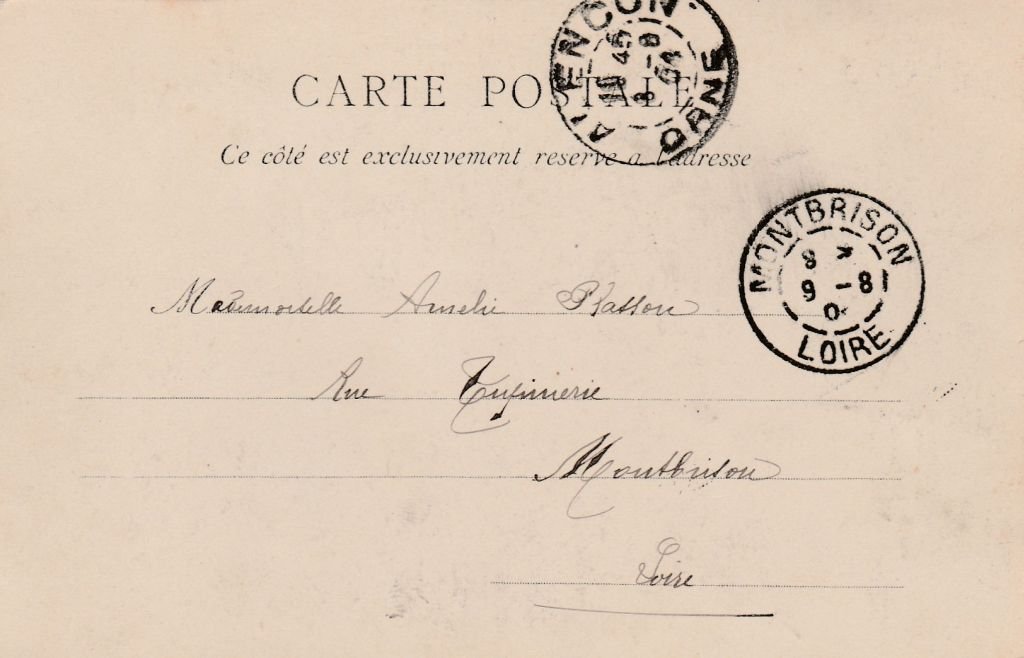 ALENCON
ORNE
10 45
8 -8
04
CARTE POSTALE
Ce côté est exclusivement reservé a l'adresse
MONTBRISON
8 *
9 -8
0
LOIRE
Mademoiselle Amelie Plasson
Rue Tupinerie
Montbrison
Loire